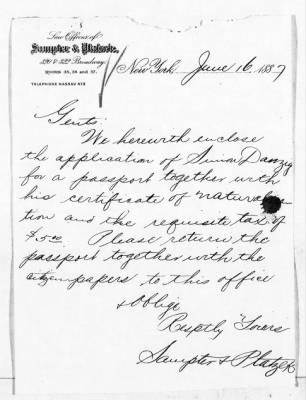 Law Offices of
Sampter & Platzek,
320 & 322 Broadway.
ROOMS 35, 36 and 37.
TELEPHONE NASSAU 473
New York, June 16, 1887
Gents:
We herewith enclose
the application of Simon Danzig
for a passport together with
his certificate of naturaliza
tion and the requisite tax of
$5.00 Please return the
passport together with the
citizen papers to this office
& Oblige
Respctly Yours
Sampter & Platzek